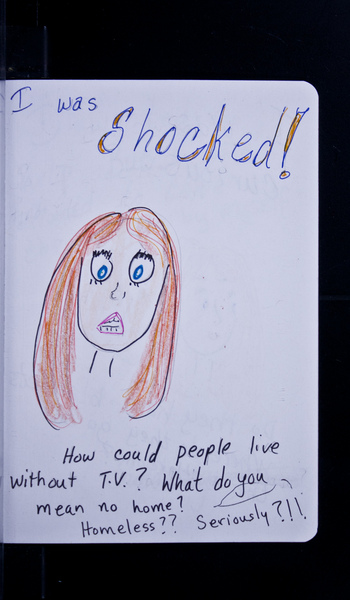 I was
Shocked!
How could people live
without T.V.? What do you
mean no home?
Homeless?? Seriously?!!!